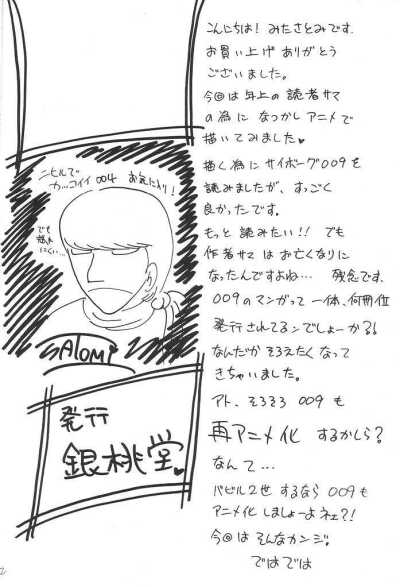 こんにちは！みたさとみです。
お買い上げ ありがとう
ございました。
今@は 年上の 読者サマ
の為に なつかし アニメで
描いてみました♥
描く為に サイボーグ009を
読みましたが、すっごく
良かったです。
もっと 読みたい!! でも
作者サマ は お亡くなりに
なったんですよね… 残念です。
009のマンガって 一体、何冊位
発行 されてるンでしょーか?!
なんだか そろえたく なって
きちゃいました。
アト、そろそろ 009 も
再アニメ化 するかしら?
なんて…
バビル2世 するなら 009も
アニメ化 しましょーよネェ?!
今@は そんなカンジ。
ではでは
ニヒルで
カッコイイ 004 お気に入り!
でも
描き
にくい…
SATOMI
発行
銀桃堂♥
2